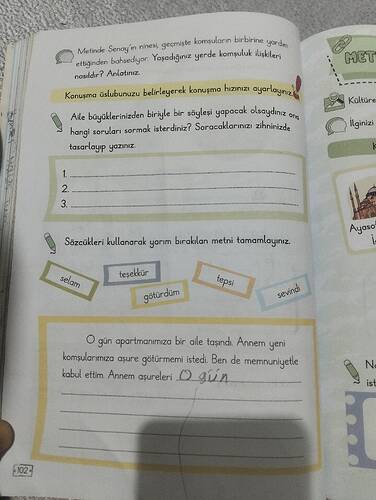 Metinde Şenay'ın ninesi, geçmişte komşuların birbirine yardım
ettiğinden bahsediyor. Yaşadığınız yerde komşuluk ilişkileri
nasıldır? Anlatınız.
Konuşma üslubunuzu belirleyerek konuşma hızınızı ayarlayınız.
Aile büyüklerinizden biriyle bir söyleşi yapacak olsaydınız ona
hangi soruları sormak isterdiniz? Soracaklarınızı zihninizde
tasarlayıp yazınız.
1.
2.
3.
Sözcükleri kullanarak yarım bırakılan metni tamamlayınız.
selam
teşekkür
götürdüm
tepsi
sevindi
O gün apartmanımıza bir aile taşındı. Annem yeni
komşularımıza aşure götürmemi istedi. Ben de memnuniyetle
kabul ettim. Annem aşureleri O gün
102
MET
Kültüre
İlginizi
Ayasof